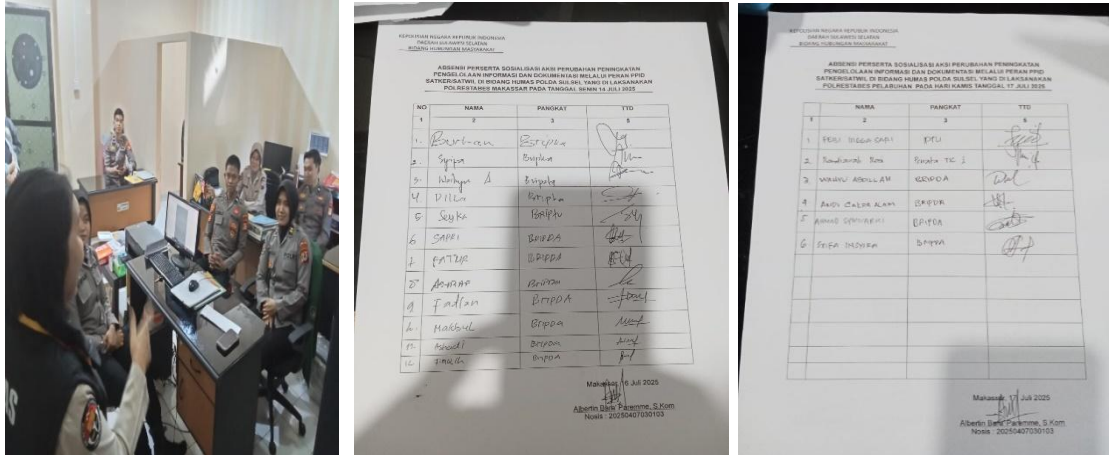 KEPOLISIAN NEGARA REPUBLIK INDONESIA
DAERAH SULAWESI SELATAN
BIDANG HUBUNGAN MASYARAKAT
ABSENSI PERSERTA SOSIALISASI AKSI PERUBAHAN PENINGKATAN
PENGELOLAAN INFORMASI DAN DOKUMENTASI MELALUI PERAN PPID
SATKER/SATWIL DI BIDANG HUMAS POLDA SULSEL YANG DI LAKSANAKAN
POLRESTABES MAKASSAR PADA TANGGAL SENIN 14 JULI 2025
NO NAMA PANGKAT TTD
1 2 3 5
1. Burhan Bripka
2. Bripka
3. Bripka
4. Dilla Bripka
5. Briptu
6 SAPRI BRIPDA
7 FATUR BRIPDA
8 BRIPDA
9 Fadlan BRIPDA
Makbul BRIPDA
Ashadi BRIPDA
12 BRIPDA
Makassar, 16 Juli 2025
Albertin Bara' Paremme, S.Kom
Nosis : 20250407030103
KEPOLISIAN NEGARA REPUBLIK INDONESIA
DAERAH SULAWESI SELATAN
BIDANG HUBUNGAN MASYARAKAT
ABSENSI PERSERTA SOSIALISASI AKSI PERUBAHAN PENINGKATAN
PENGELOLAAN INFORMASI DAN DOKUMENTASI MELALUI PERAN PPID
SATKER/SATWIL DI BIDANG HUMAS POLDA SULSEL YANG DI LAKSANAKAN
POLRESTABES PELABUHAN PADA HARI KAMIS TANGGAL 17 JULI 2025
NAMA PANGKAT TTD
1 2 3 5
1
2
3 ABDILLAH BRIPDA
4 ANDI ALAM BRIPDA
5 AHMAD BRIPDA
6 BRIPDA
Makassar, 17 Juli 2025
Albertin Bara' Paremme, S.Kom
Nosis : 20250407030103